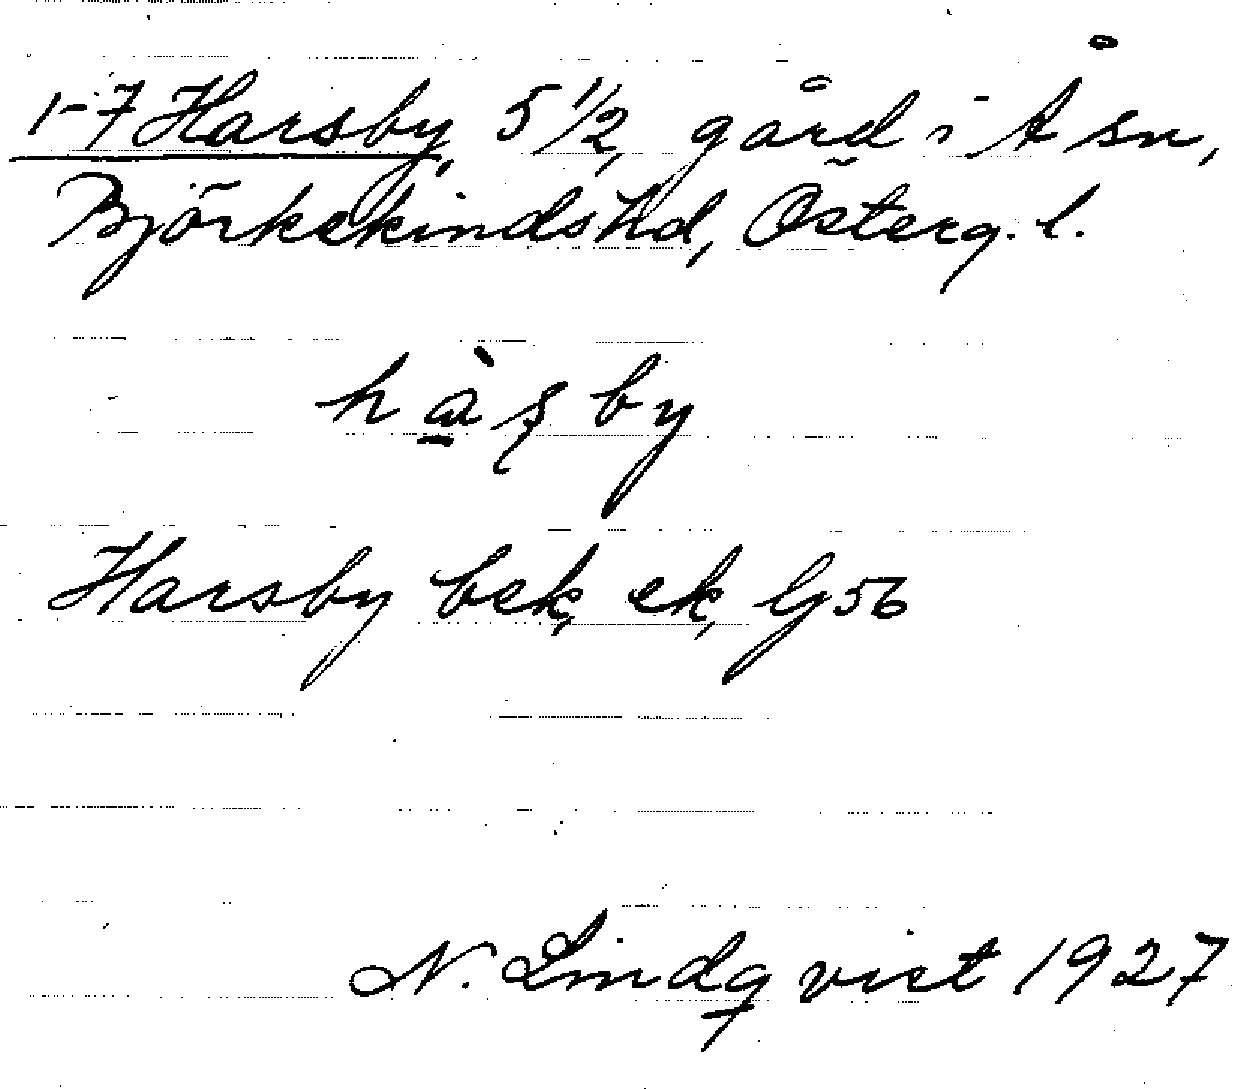 1-7 Harsby, 5 1/2, gård i Å sn,
Björkekinds hd, Österg. l.
hàʂby
Harsby bek, ek, Gj 56
N. Lindqvist 1927